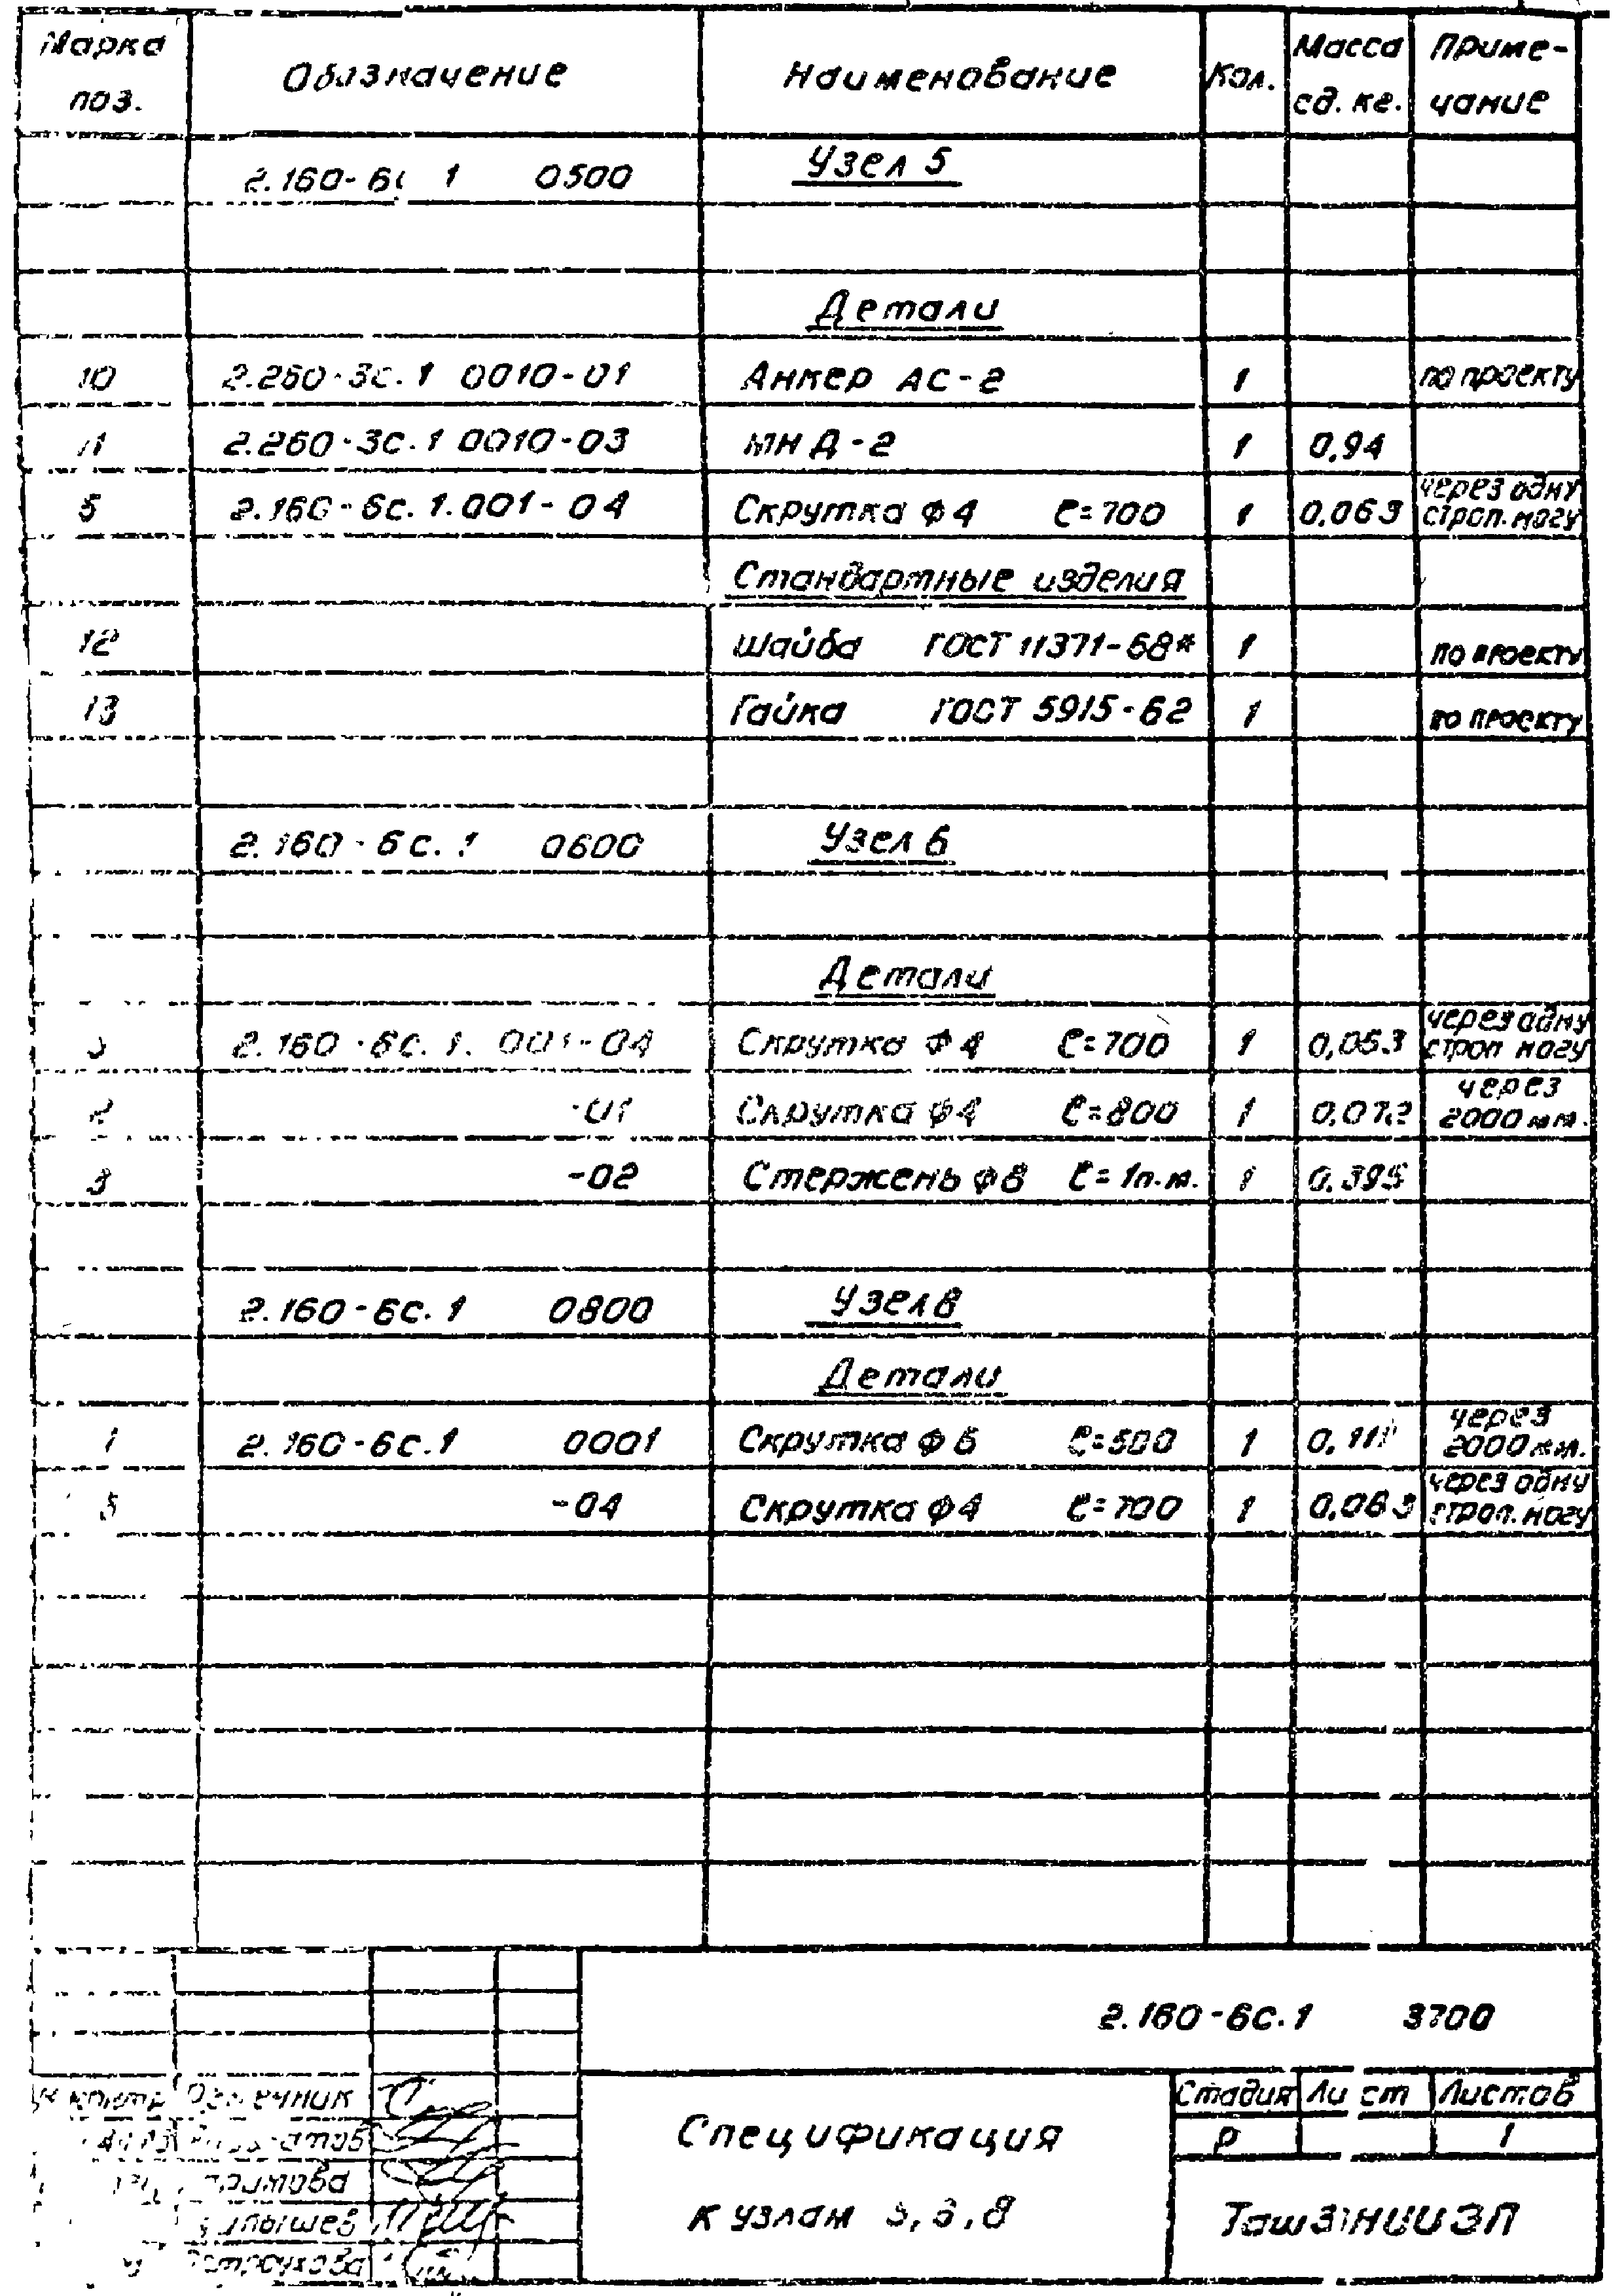 Марка поз. Обозначение Наименование Кол. Масса ед. кг. Приме-чание
2.160-6с 1 0500 Узел 5
Детали
10 2.260-3с.1 0010-01 Анкер АС-2 1 по проекту
11 2.260-3с.1 0010-03 МН Д-2 1 0,94
5 2.160-6с.1.001-04 Скрутка Ф4 ℓ=700 1 0,063 через одну строп. ногу
Стандартные изделия
12 Шайба ГОСТ 11371-68* 1 по проекту
13 Гайка ГОСТ 5915-62 1 по проекту
2.160-6с.1 0600 Узел 6
Детали
2.160-6с.1. 001-04 Скрутка Ф4 ℓ=700 1 0,063 через одну строп ногу
2 -01 Скрутка Ф4 ℓ=800 1 0,072 через 2000 мм.
3 -02 Стержень Ф8 ℓ=1п.м. 1 0,395
2.160-6с.1 0800 Узел 8
Детали
1 2.160-6с.1 0001 Скрутка Ф6 ℓ=500 1 0,111 через 2000 мм.
5 -04 Скрутка Ф4 ℓ=700 1 0,063 через одну строп. ногу
2.160-6с.1 3700
Спецификация
к узлам 5,6,8
Стадия Лист Листов
Р 1
ТашЗНИИЭП